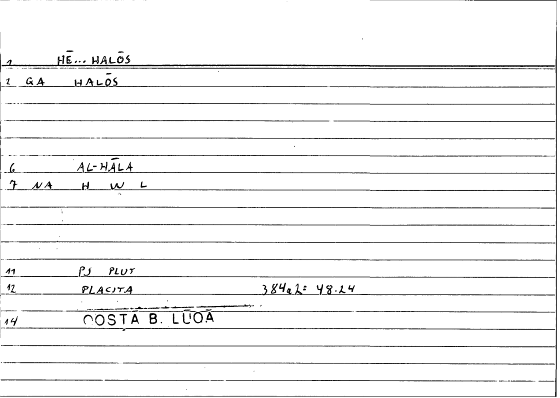 1 HĒ... HALŌS
2 GA HALŌS
6 AL-HĀLA
7 NA H W L
11 PJ PLUT
12 PLACITA 384a2= 48.24
14 COSTA B. LŪQĀ